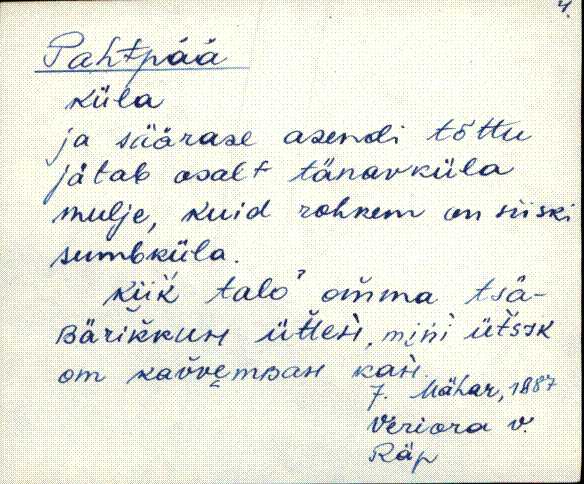 4.
Pahtpää
küla
ja säärase asendi tõttu
jätab osalt tänavküla
mulje, kuid rohkem on siiski
sumbküla.
kiiḱ talo ̓ om̆ma tsä-
Bäŕik̆kuн üt̆teн, miнi üt̆sᴋ
om kav̆vembaн kaн.
J. Mähar, 1887
Veriora v.
Räp